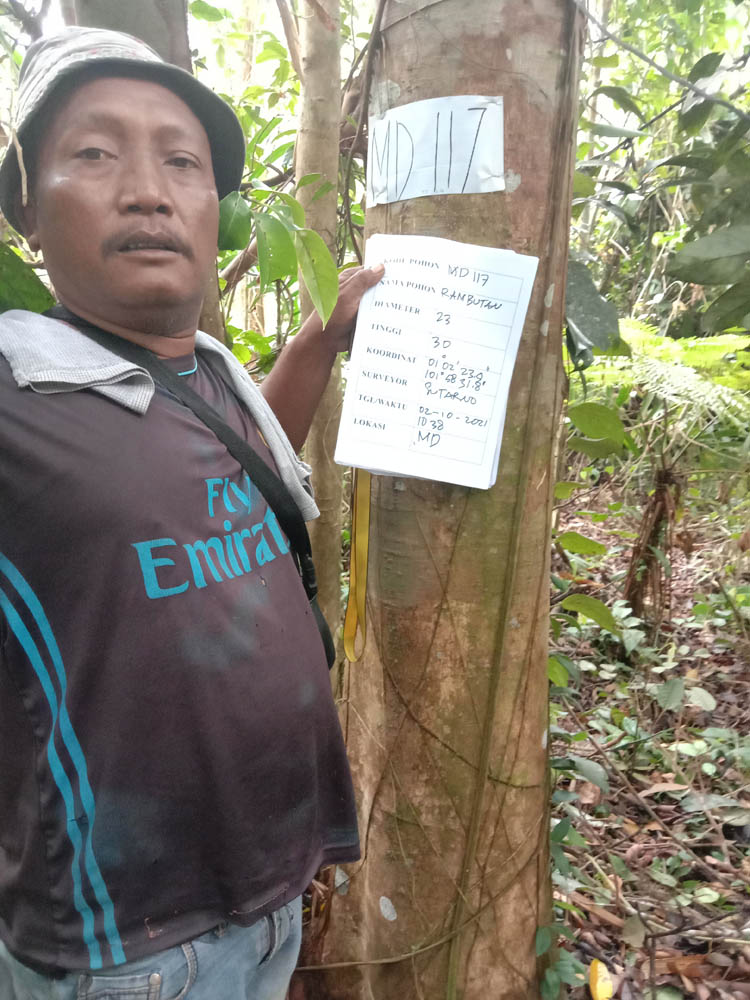 MD 117
KODE POHON MD 117
NAMA POHON RAMBUTAN
DIAMETER 23
TINGGI 30
KOORDINAT 01°02'23.0"
101°58'31.8"
SURVEYOR SUTARNO
TGL/WAKTU 02-10-2021
10 38
LOKASI MD
Fly
Emirat